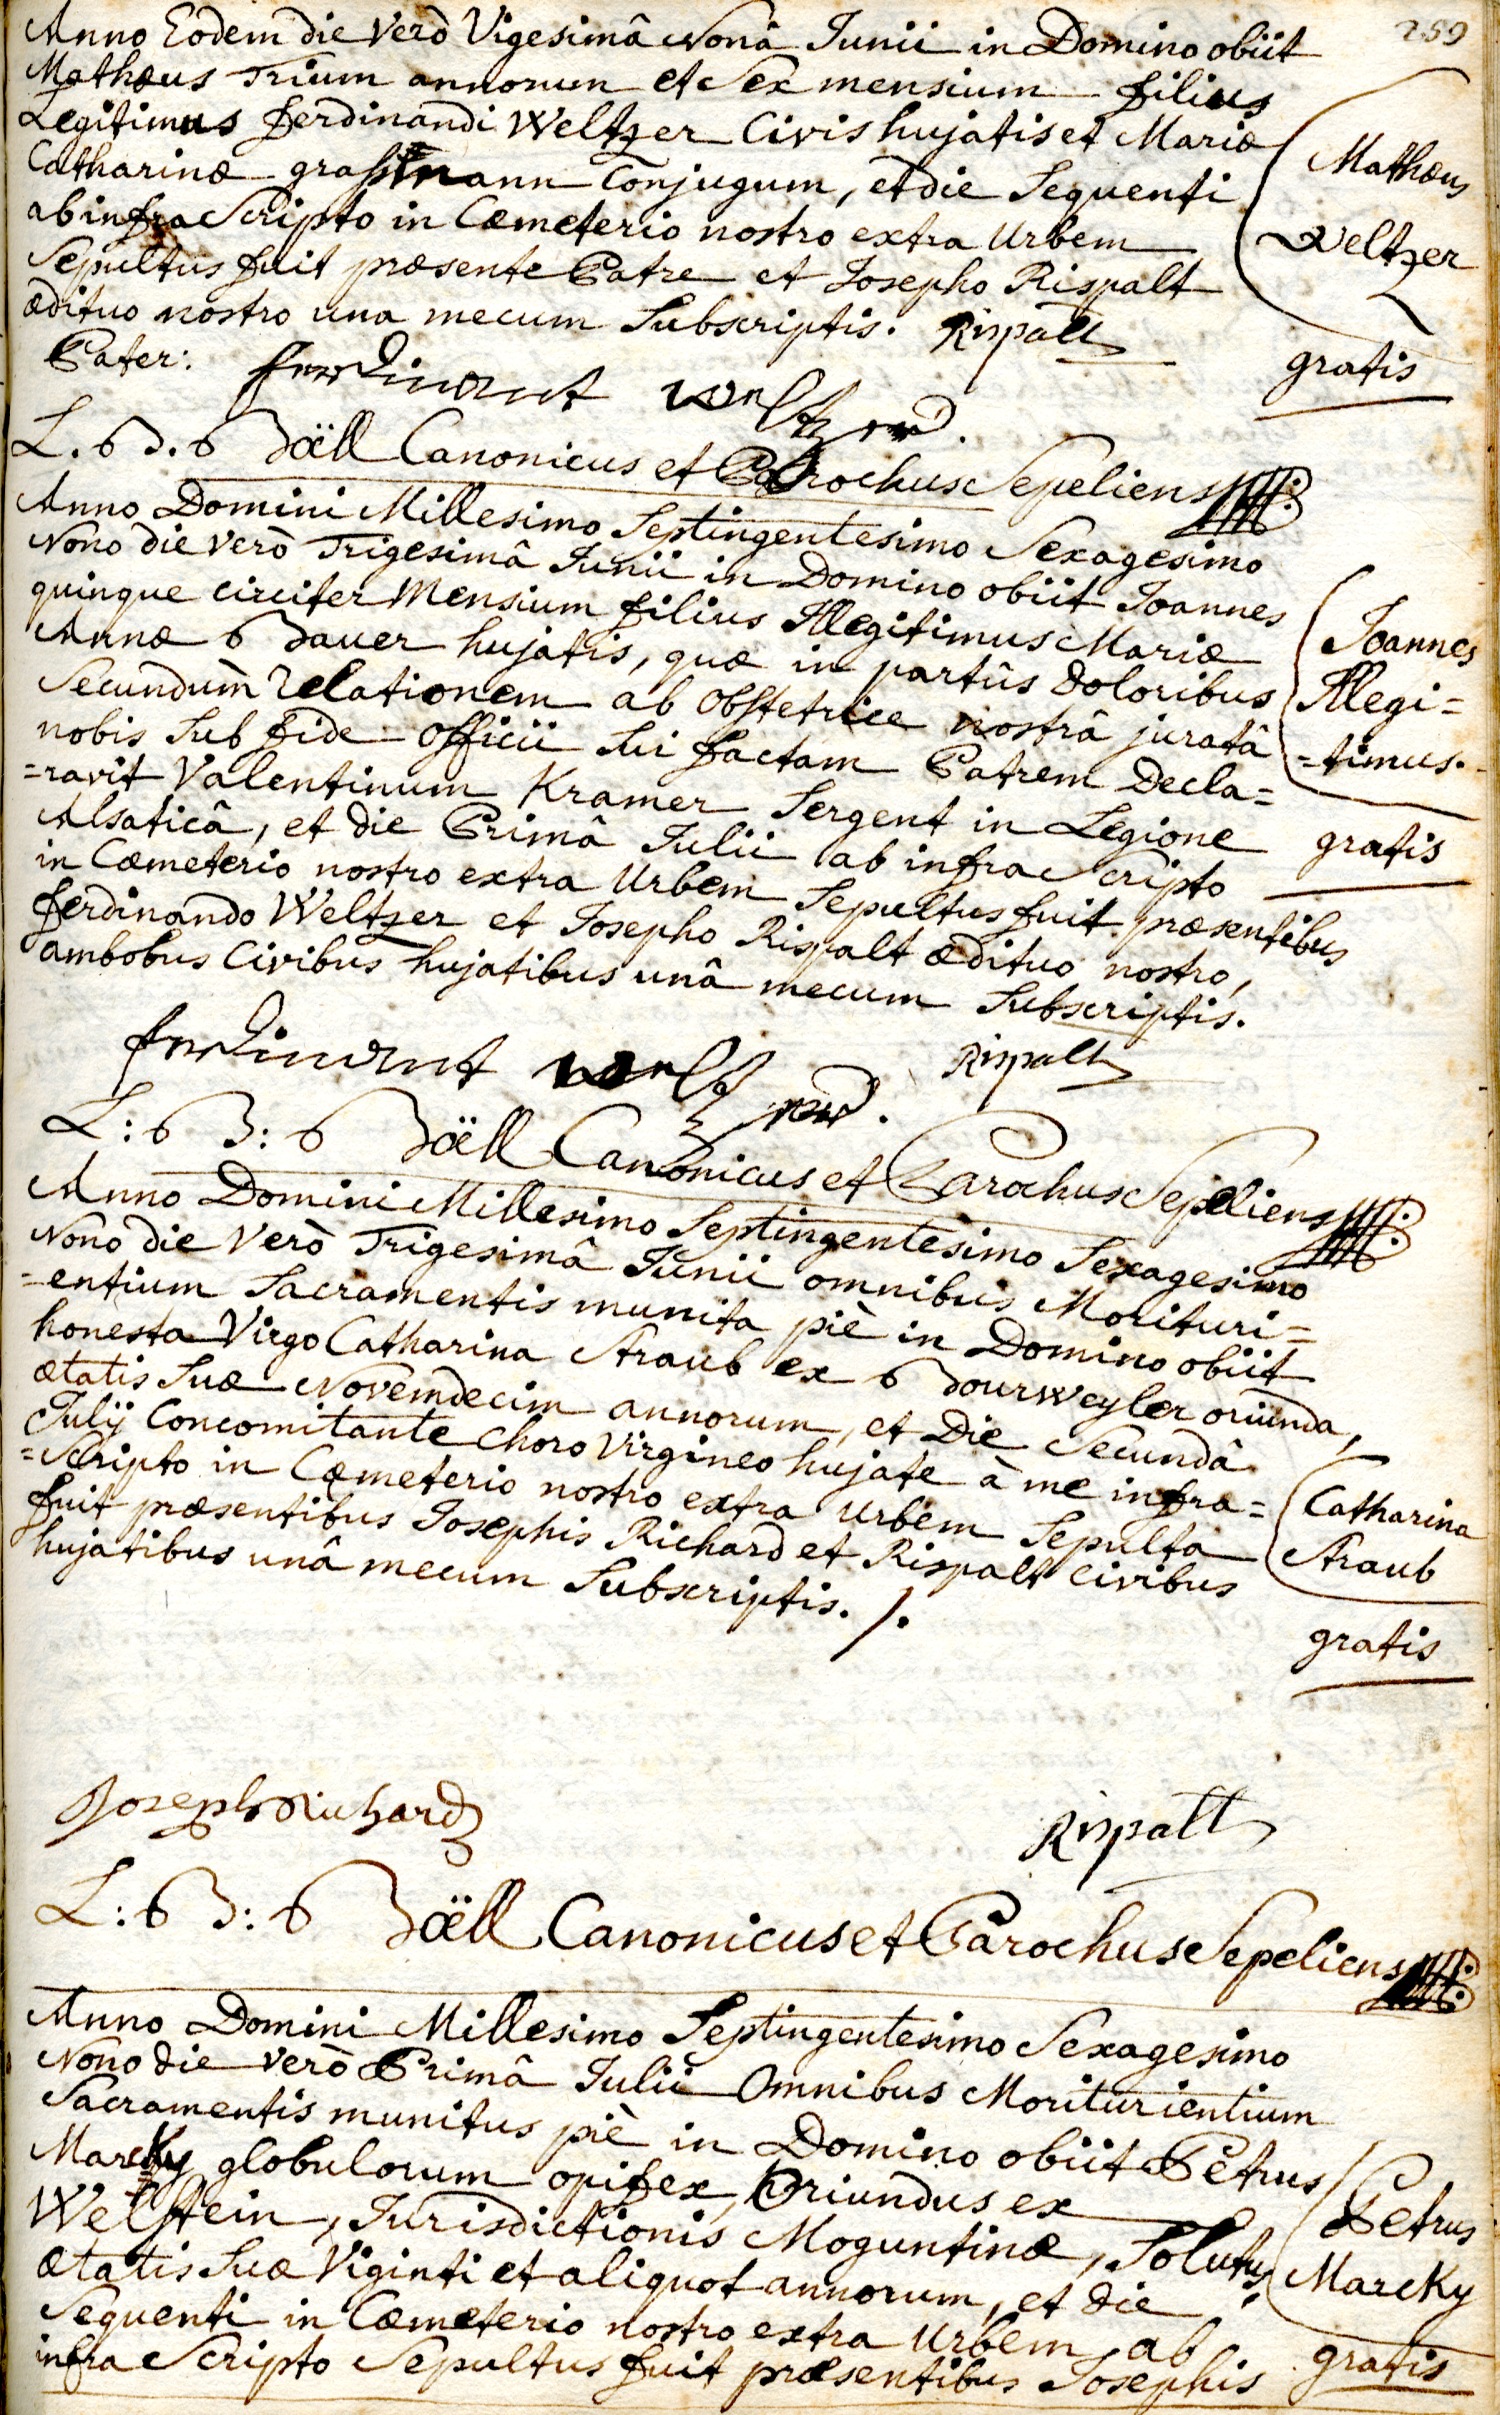 259
Anno Eodem die verò Vigesimâ Nonâ Junii in Domino obiit
Mathæus Trium annorum et Sex mensium filius
Legitimus ferdinandi Weltzer Civis hujatis et Mariæ
Catharinæ graßmann Conjugum, et die Sequenti
ab infra Scripto in Cæmeterio nostro extra Urbem
Sepultus fuit præsente Patre et Josepho Rispalt
ædituo nostro una mecum Subscriptis. Rispalt
Pater: ferdinant weltzer
Mathæus
Weltzer
gratis
L. B. Boëll Canonicus et Parochus Sepeliens
Anno Domini Millesimo Septingentesimo Sexagesimo
Nono die verò Trigesimâ Junii in Domino obiit Joannes
quinque circiter Mensium filius Illegitimus Mariæ
Annæ Bauer hujatis, quæ in partûs doloribus
Secundùm relationem ab Obstetrice nostrâ juratâ
nobis Sub fide Officii Sui factam Patrem Decla=
=ravit Valentinum Kramer Sergent in Legione
Alsaticâ, et die Primâ Julii ab infra Scripto
in Cæmeterio nostro extra Urbem Sepultus fuit præsentibus
ferdinando Weltzer et Josepho Rispalt ædituo nostro,
ambobus Civibus hujatibus unâ mecum Subscriptis.
Joannes
Illegi=
=timus.
gratis
ferdinant weltzer Rispalt
L: B: Boëll Canonicus et Parochus Sepeliens
Anno Domini Millesimo Septingentesimo Sexagesimo
Nono die Verò Trigesimâ Junii omnibus Morituri=
=entium Sacramentis munita piè in Domino obiit
honesta Virgo Catharina Straub ex Bourweyler oriunda,
ætatis Suæ Novemdecim annorum, et Die Secundâ
Julij Concomitante Choro Virgineo hujate à me infra=
=Scripto in Cæmeterio nostro extra Urbem Sepulta
fuit præsentibus Josephis Richard et Rispalt Civibus
hujatibus unâ mecum Subscriptis. /.
Catharina
Straub
gratis
Joseph Richard Rispalt
L: B: Boëll Canonicus et Parochus Sepeliens
Anno Domini Millesimo Septingentesimo Sexagesimo
Nono die verò Primâ Julii Omnibus Moriturientium
Sacramentis munitus piè in Domino obiit Petrus
Marcky globulorum opifex, Oriundus ex
Welstein, Jurisdictionis Moguntinæ, Solutus,
ætatis Suæ Viginti et aliquot annorum, et die
Sequenti in Cæmeterio nostro extra Urbem ab
infra Scripto Sepultus fuit præsentibus Josephis
Petrus
Marcky
gratis